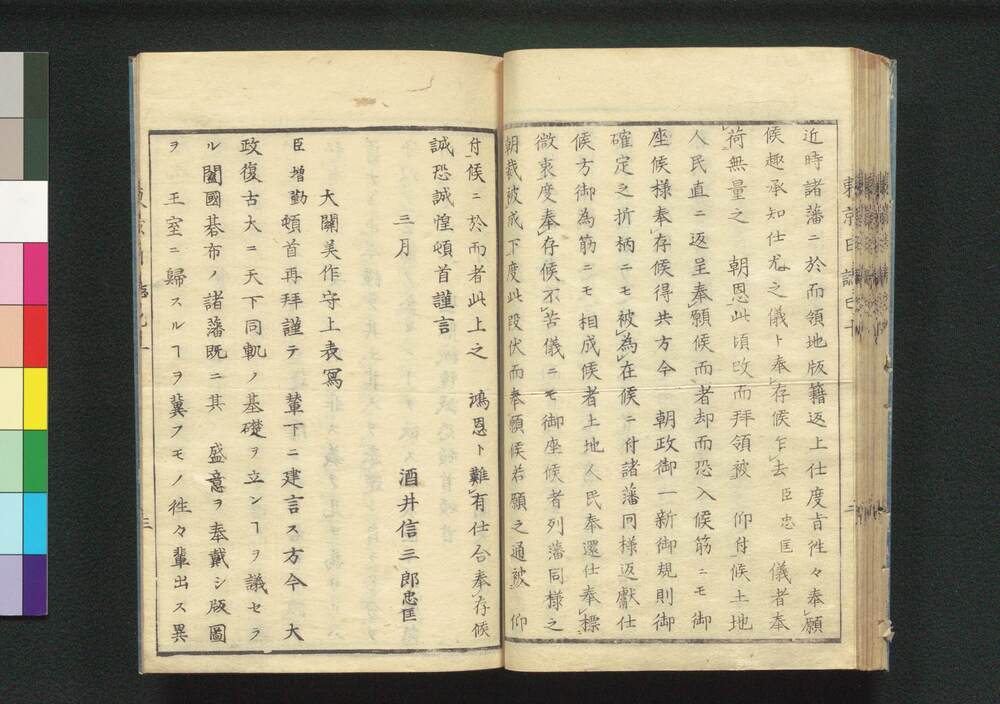 近時諸藩ニ於而領地版籍返上仕度旨徃々奉願
候趣承知仕尤之儀ト奉存候乍去臣忠匡儀者奉
荷無量之　朝恩此頃改而拝領被　仰付候土地
人民直ニ返呈奉願候而者却而恐入候筋ニモ御
座候様奉存候得共方今　朝政御一新御規則御
確定之折柄ニモ被為在候ニ付諸藩同様返獻仕
候方御為筋ニモ相成候者土地人民奉還仕奉標
微衷度奉存候不苦儀ニモ御座候者列藩同様之
朝裁被成下度此段伏而奉願候若願之通被　仰
付候ニ於而者此上之　鴻恩ト難有仕合奉存候
誠恐誠惶頓首謹言
三月　酒井信三郎忠匡
大關美作守上表寫
臣増勤頓首再拝謹テ輦下ニ建言ス方今　大
政復古大ニ天下同軌ノ基礎ヲ立ンヿヲ議セラ
ル闔國碁布ノ諸藩既ニ其　盛意ヲ奉戴シ版圖
ヲ　王室ニ歸スルヿヲ冀フモノ徃々輩出ス異
東京日誌巳十
三